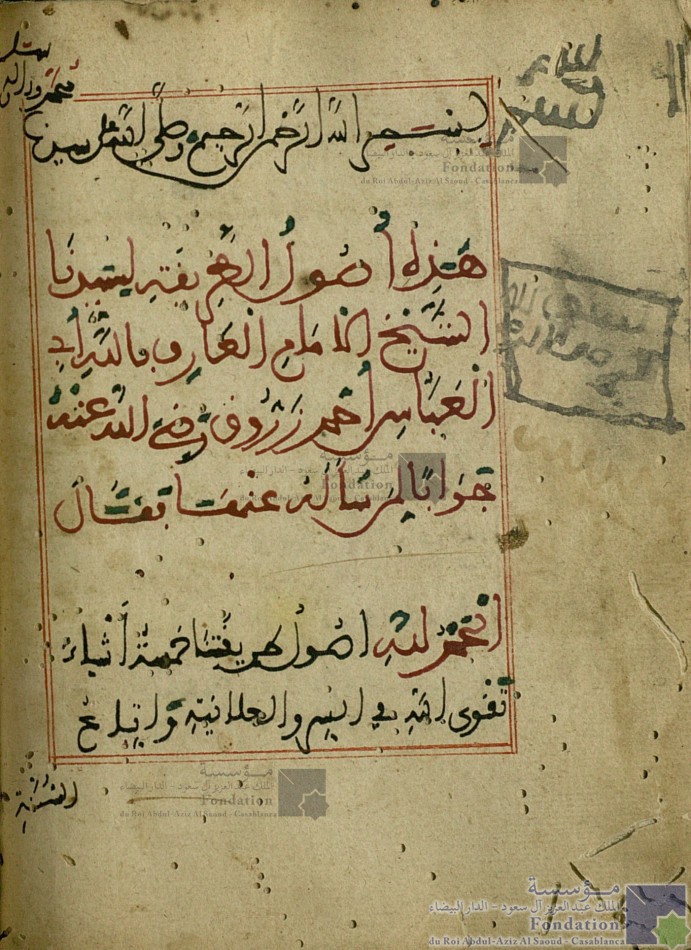 بسم الله الرحمن الرحيم وصلى الله على سيدنا
محمد وآله
هذه أصول الطريقة لسيدنا
الشيخ الامام العارف بالله أبي
العباس أحمد زروق رضي الله عنه
جوابا لمن سأله عنها فقال
الحمد لله اصول طريقتنا خمسة أشياء
تقوى الله في السر والعلانية واتباع
السنة
مؤسسة
الملك عبد العزيز آل سعود - الدار البيضاء
Fondation
du Roi Abdul-Aziz Al Saoud - Casablanca